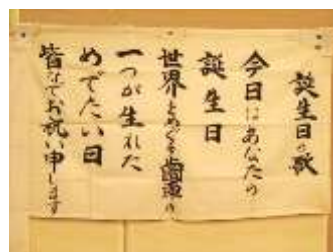 誕生日の歌
今日はあなたの
誕生日
世界とめぐる歯車の
一つが生れた
めでたい日
皆なでお祝い申します